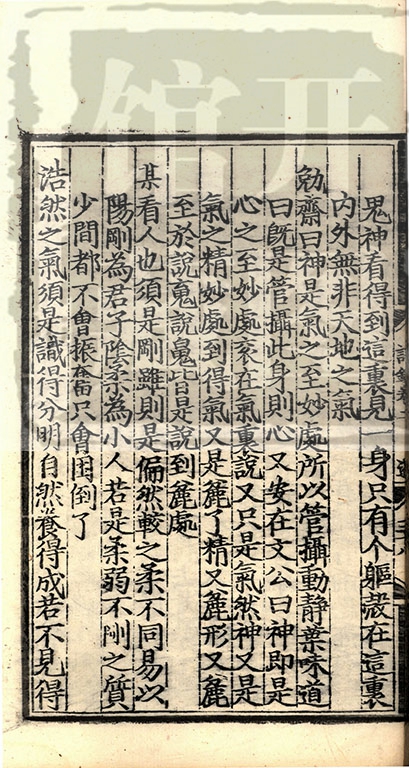 鬼神看得到這裏見一身只有个軀殼在這裏
内外無非天地之氣
勉齋曰神是氣之至妙處所以管攝動静葉味道
曰旣是管攝此身則心又安在文公曰神即是
心之至妙處衮在氣裏說又只是氣然神又是
氣之精妙處到得氣又是麄了精又麄形又麄
至於說䰟說䰟皆是說到麄處
某看人也須是剛雖則是偏然較之柔不同易以
陽剛為君子陰柔為小人若是柔弱不剛之質
少間都不會振奮只會困倒了
浩然之氣須是識得分明自然養得成若不見得
開
館